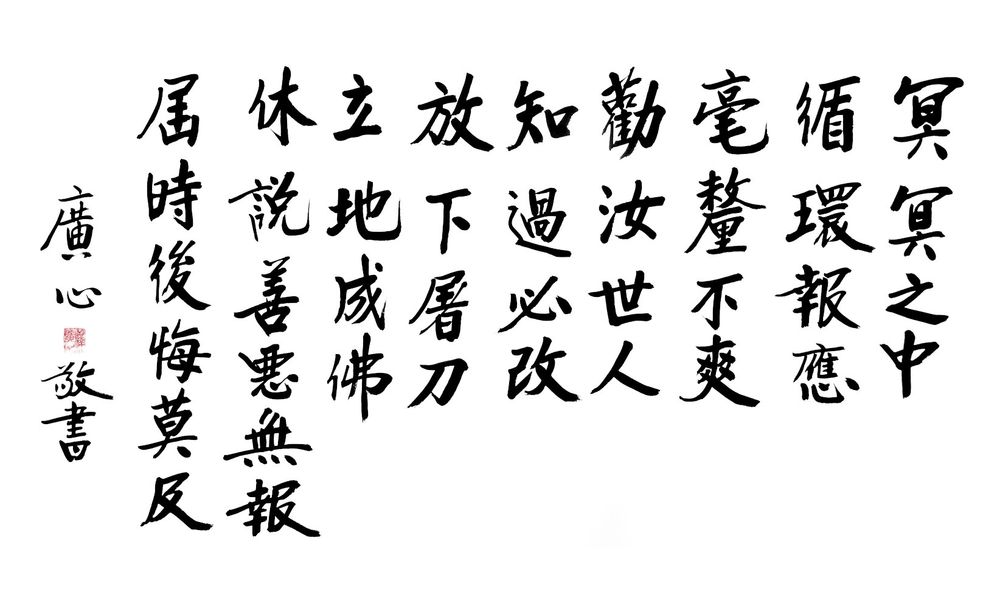 冥冥之中
循環報應
毫釐不爽
勸汝世人
知過必改
放下屠刀
立地成佛
休説善惡無報
屆時後悔莫及
廣心敬書